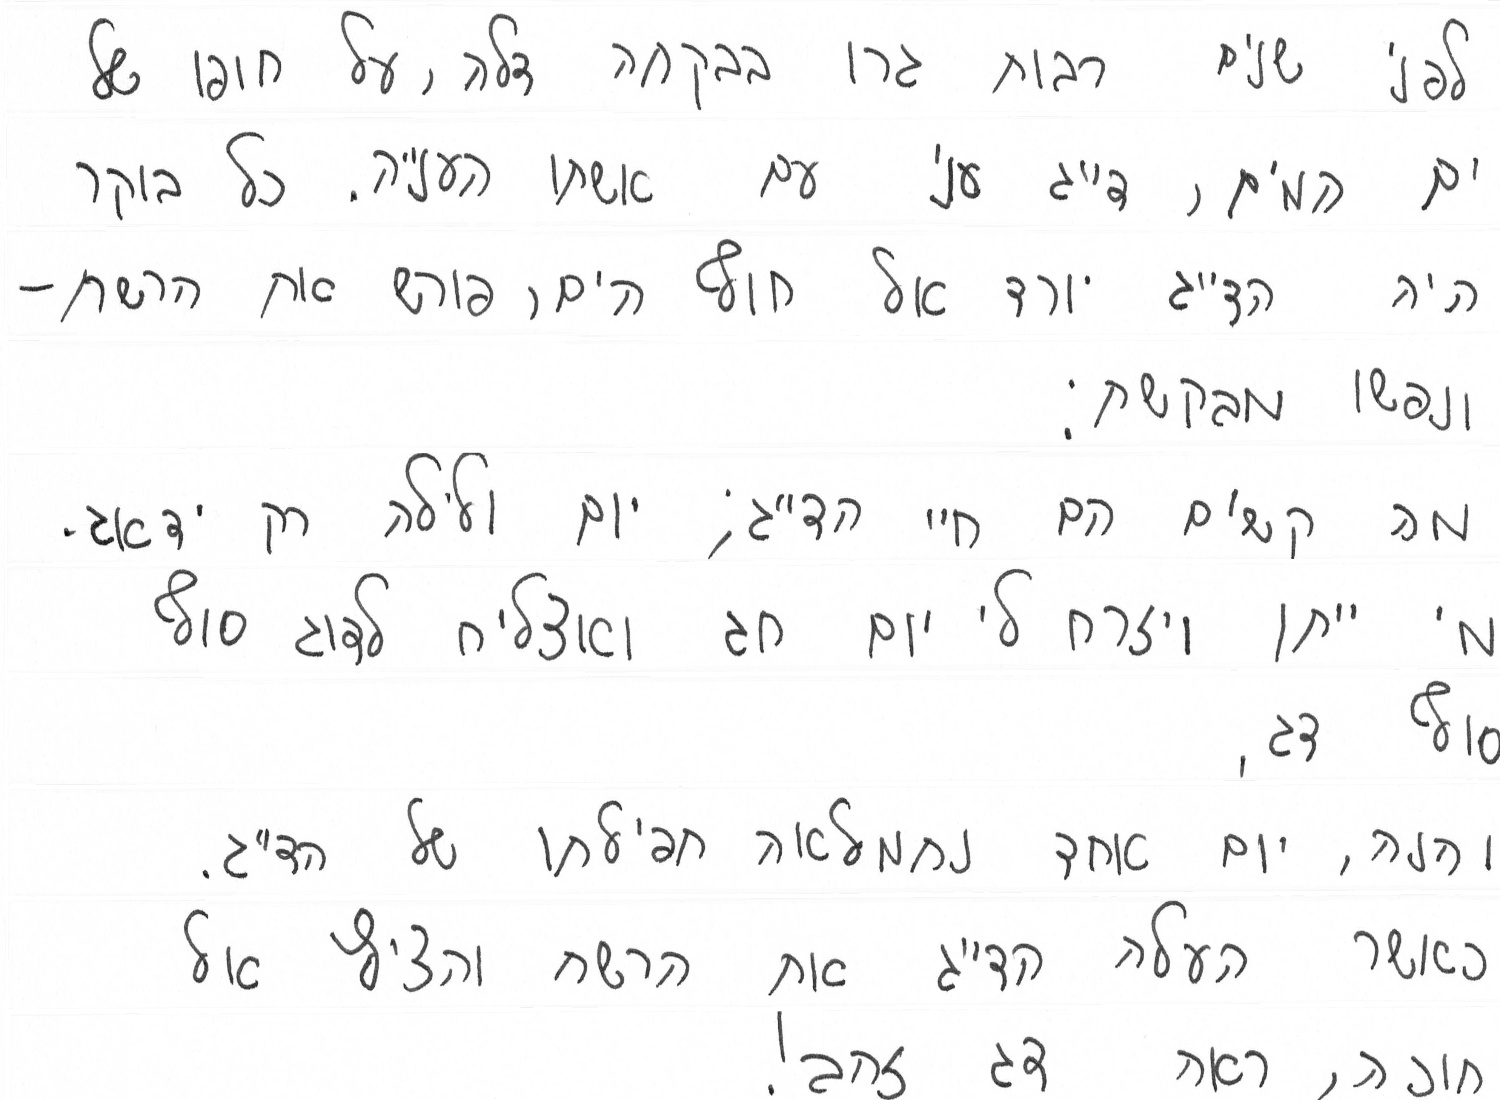 לפני שנים רבות גרו בבקתה דלה, על חופו של
ים המים, דייג עני עם אשתו הענייה. כל בוקר
היה הדייג יורד אל חוף הים, פורש את הרשת –
ונפשו מבקשת:
מה קשים הם חיי הדייג; יום ולילה רק ידאג.
מי ייתן ויזרח לי יום חג ואצליח לדוג סוף
סוף דג,
והנה, יום אחד נתמלאה תפילתו של הדייג.
כאשר העלה הדייג את הרשת והציף אל
תוכה, ראה דג זהב!